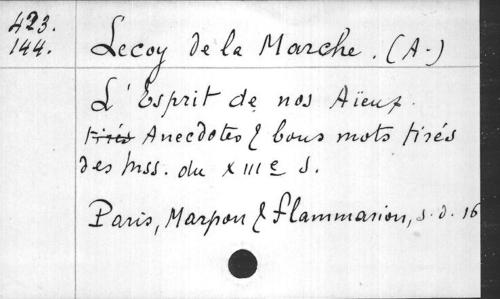 423.
144.
Lecoy de la Marche. (A-)
L'Esprit de nos Aïeux.
tirés Anecdotes & bons mots tirés
des Mss. du XIIIe S.
Paris, Marpon & Flammarion, s. d. 16